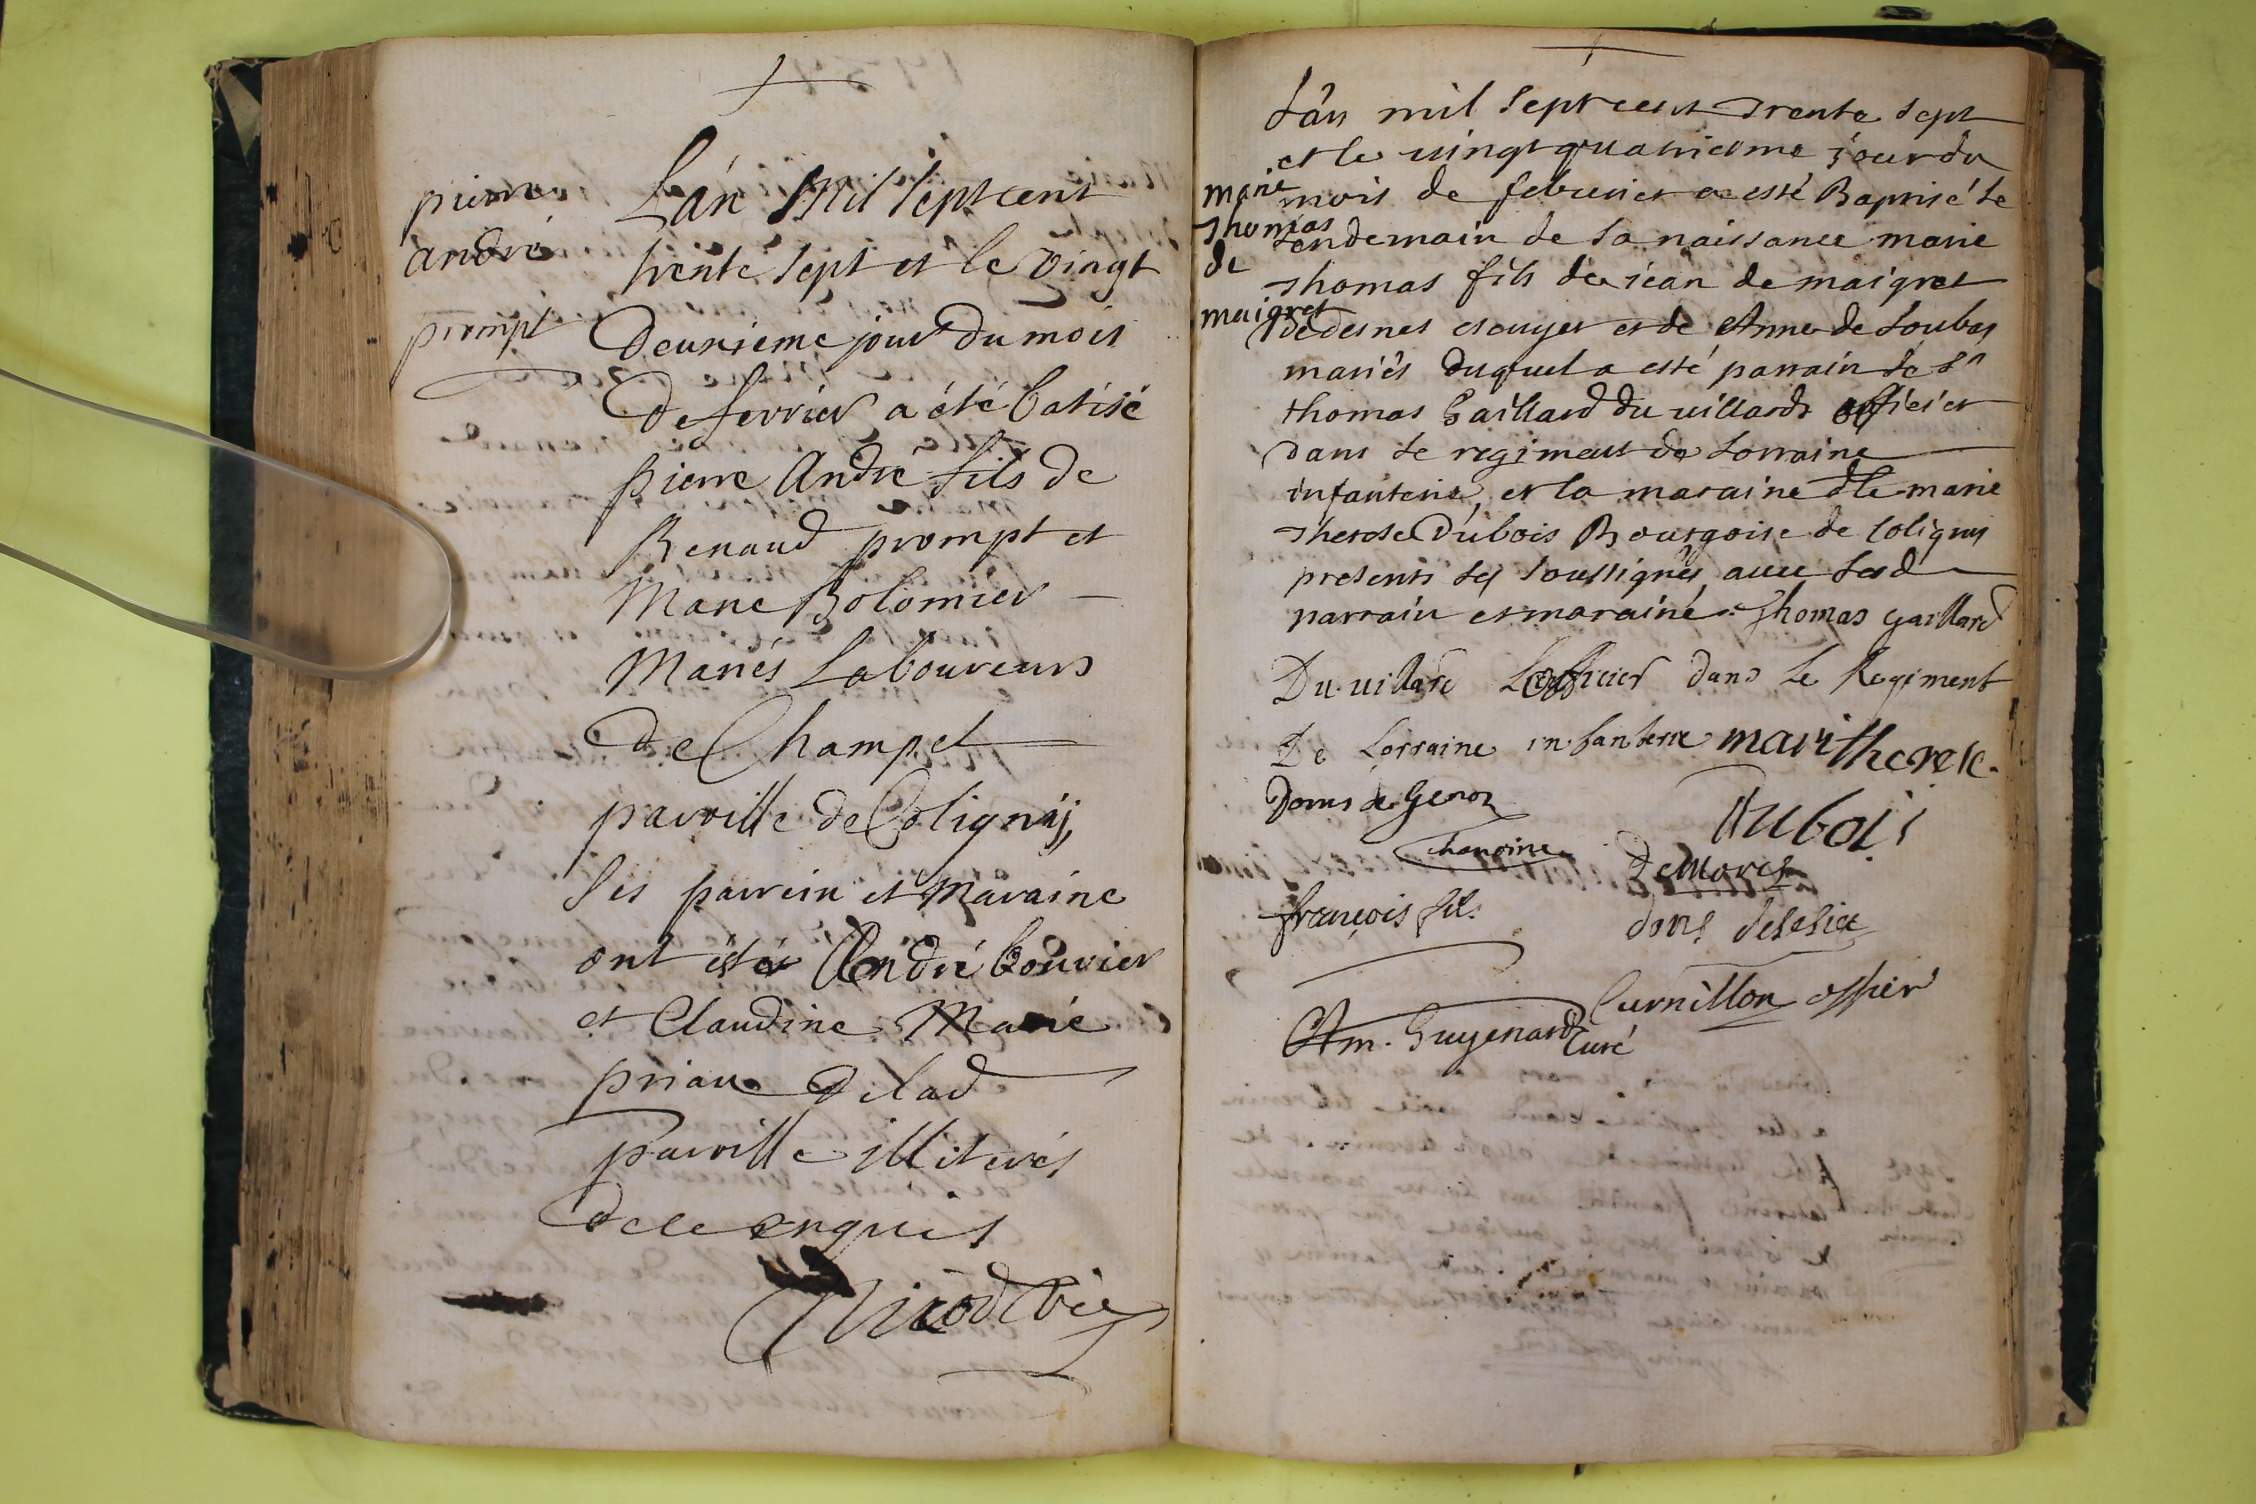 pierre
andré
prompt
L'án Mil sept cent
trente sept et le vingt
Deuxieme jour du mois
De fevrier a été batisé
pierre André fils de
Renaud prompt et
Marie Bolomier
Mariés Laboureurs
de Champel
paroisse de Colignij,
ses parrein et Maraine
ont étés André bouvier
et Claudine Marie
priau De lad
paroisse illiterés
de ce enquis
Nicod vic
L'án mil sept cent trente sept
et le vingt quatrieme jour du
marie
thomas
de
maigret
mois de febvrier a esté Baptisé le
lendemain de sa naissance marie
thomas fils de jean de maigret
dedesnes escuyer et de Anne de Loubas
mariés duquel a esté parrain le Sr
thomas Gaillard du villards officier
dans le regiment de Lorraine
infanterie, et la maraine dlle marie
therese Dubois Bourgoise de Coligny
presents les soussignés avec lesd
parrain et maraine. Thomas gaillard
Du villard officier dans Le Regiment
De Lorraine infanterie mari therese
Dubois
chanoine
françois
Curnillon offier
Am. Guyenard Curé